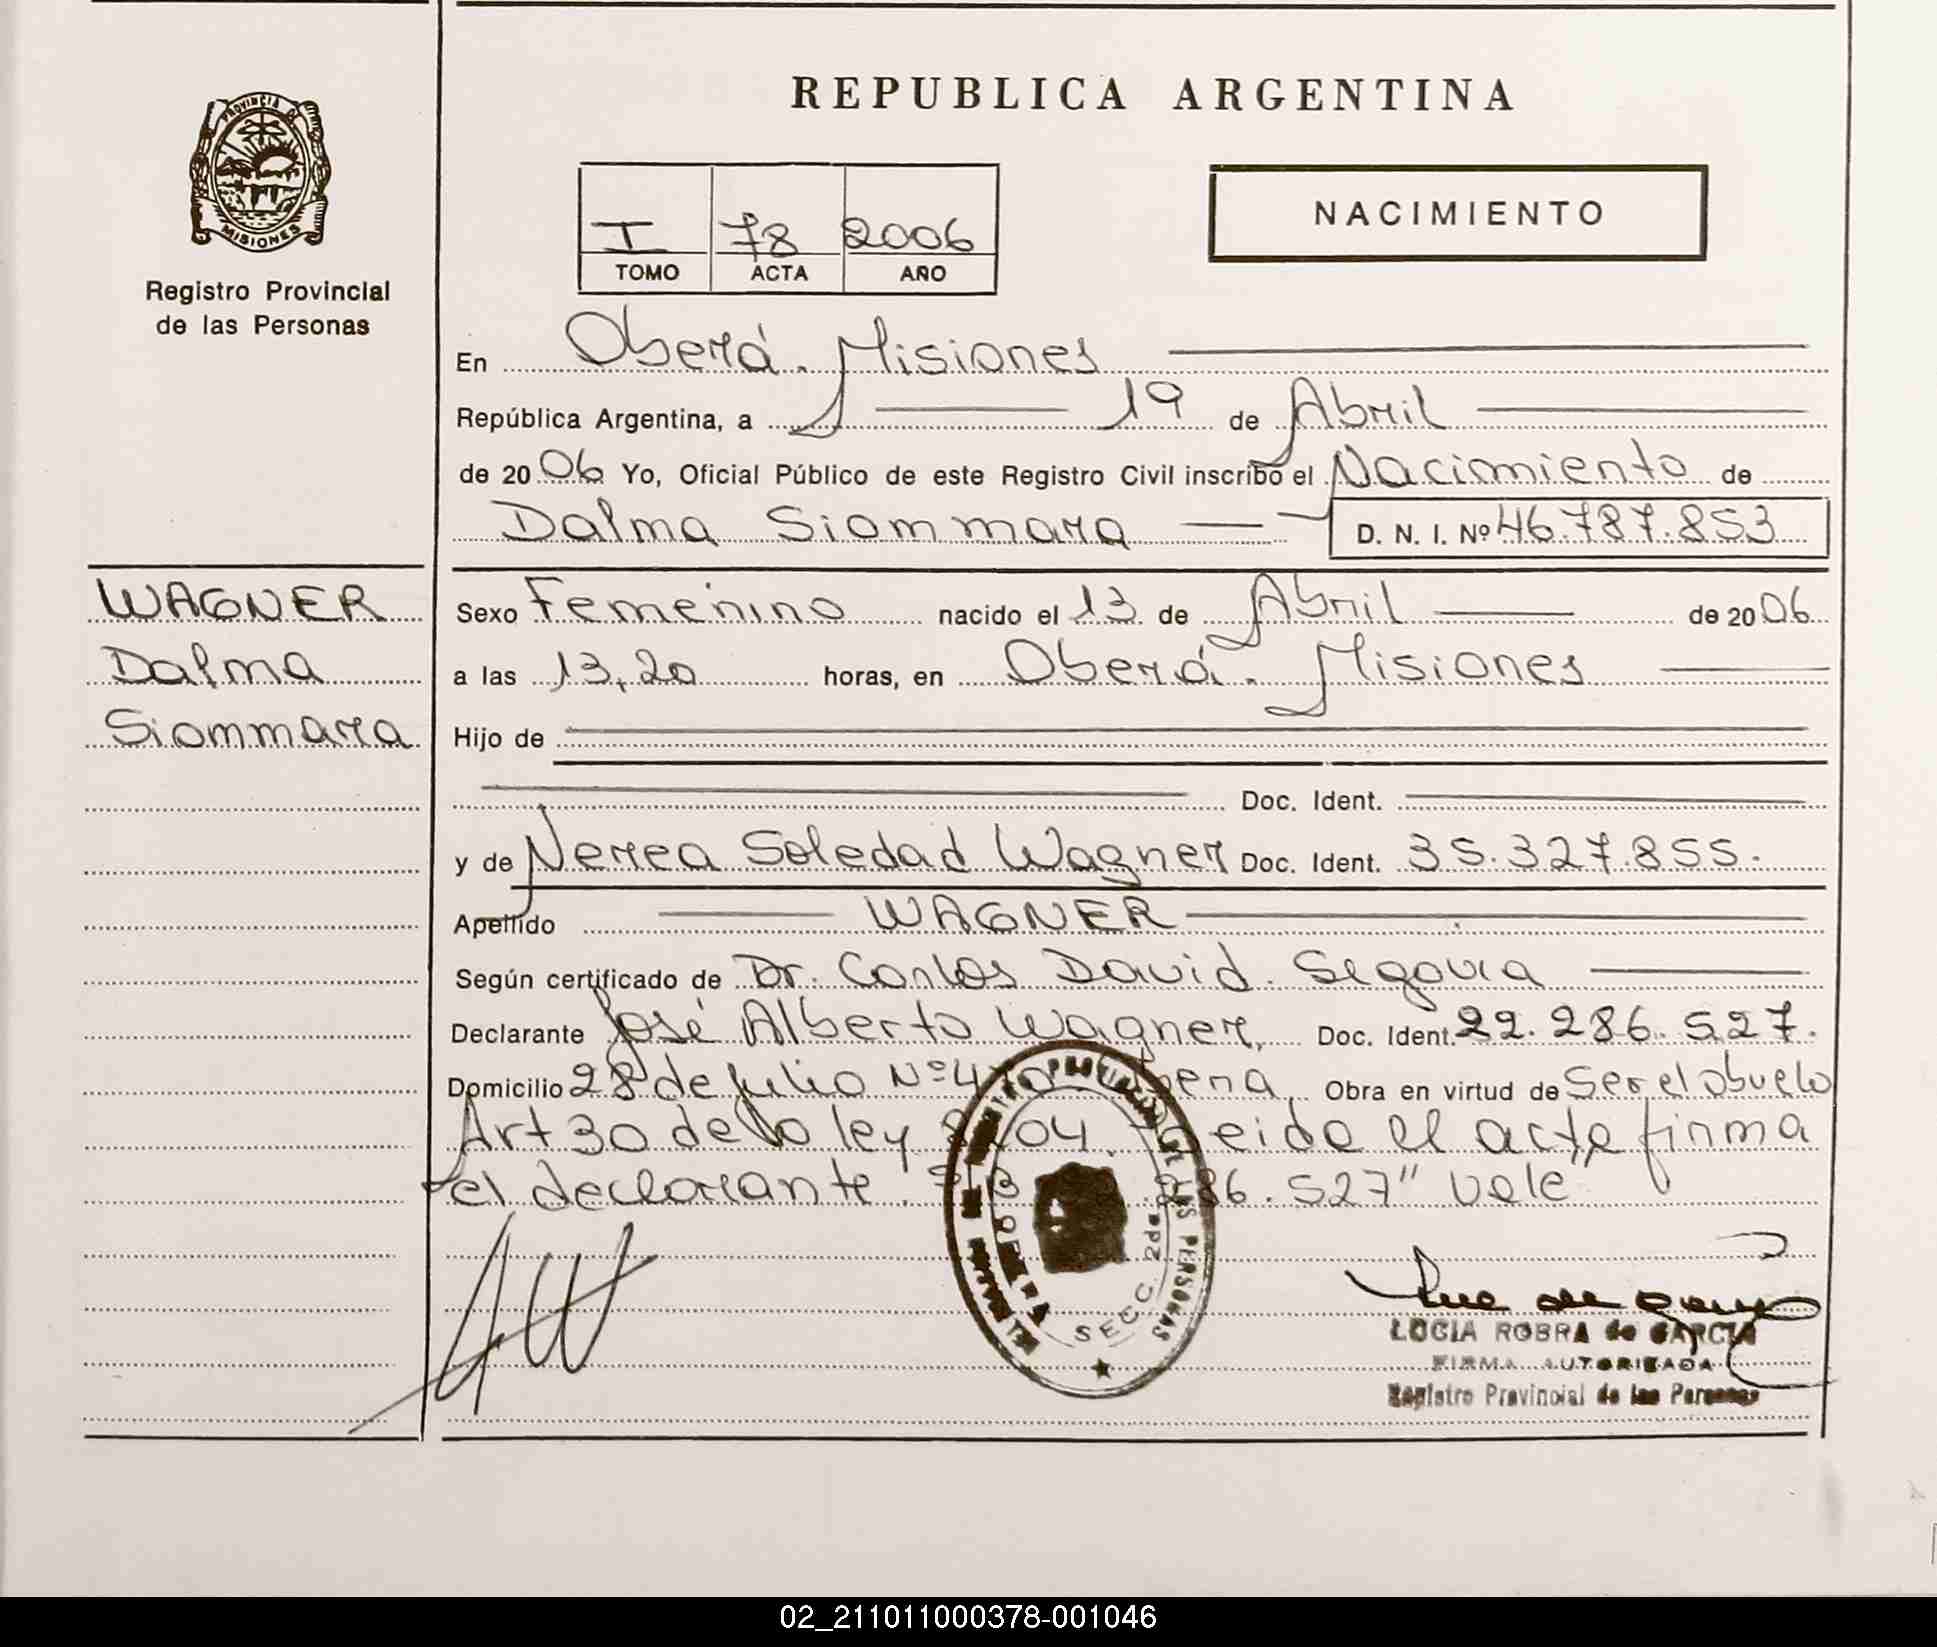 REPUBLICA ARGENTINA
PROVINCIA DE
MISIONES
Registro Provincial
de las Personas
I 78 2006
TOMO ACTA AÑO
NACIMIENTO
En Oberá. Misiones
República Argentina, a 19 de Abril
de 2006 Yo, Oficial Público de este Registro Civil inscribo el Nacimiento de
Dalma Siommara D. N. I. Nº 46.787.853
WAGNER
Dalma
Siommara
Sexo Femenino nacido el 13 de Abril de 2006
a las 13,20 horas, en Oberá. Misiones
Hijo de
Doc. Ident.
y de Nerea Soledad Wagner Doc. Ident. 35.327.855.
Apellido WAGNER
Según certificado de Dr. Carlos David Segovia
Declarante José Alberto Wagner, Doc. Ident. 22.286.527.
Domicilio 28 de Julio Nº Obra en virtud de Ser el abuelo
Art 30 de la ley 04. Leida el acta firma
el declarante. 286.527" Vale
SECC. 2da
LUCIA ROBRA de GARCIA
FIRMA AUTORIZADA
Registro Provincial de las Personas
02_211011000378-001046